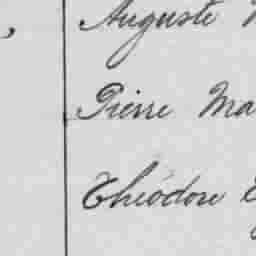 Auguste
Pierre Ma
Théodore